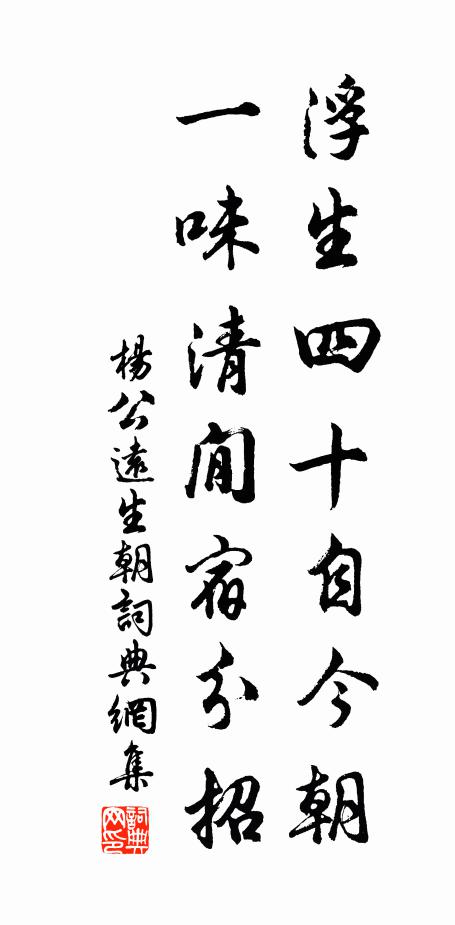 浮生四十自今朝
一味清閒宿分招
楊公遠生朝詞典網集
詞典网印